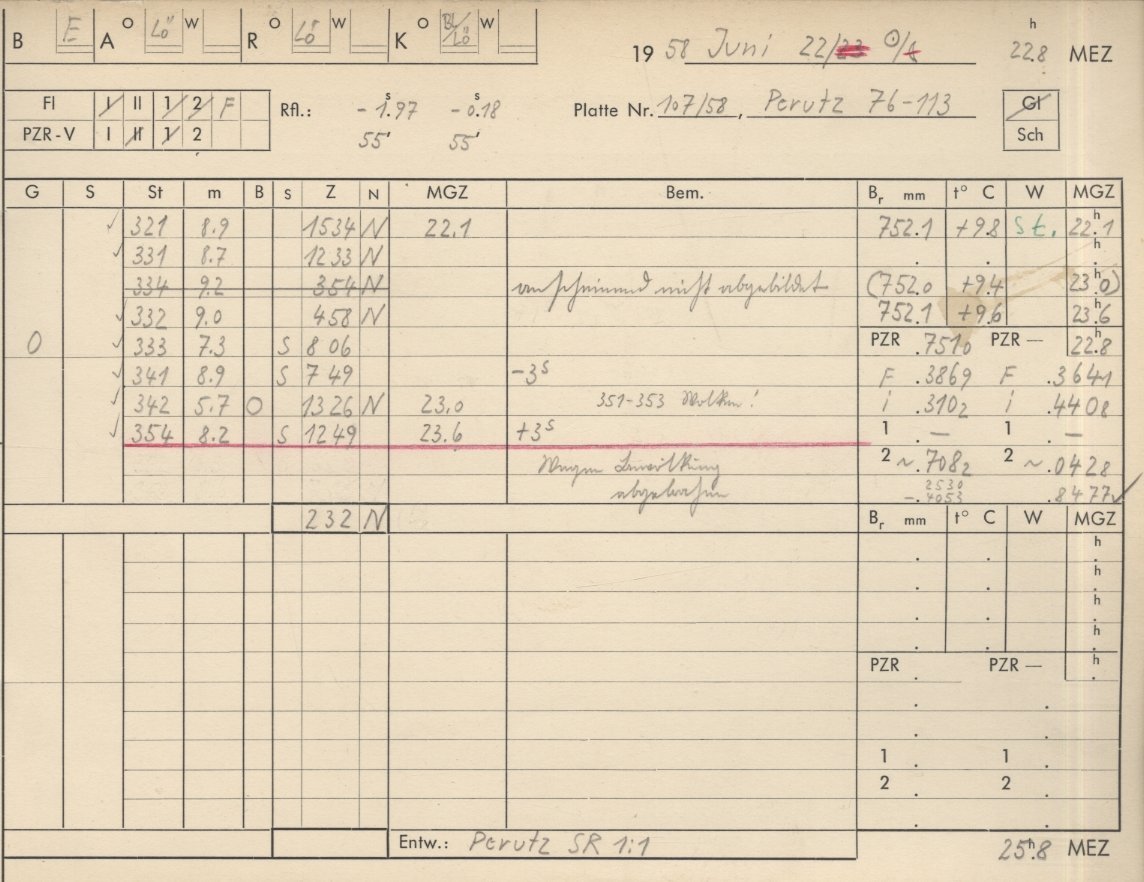 B E A O Lö W R O Lö W K O Bl/Lö W
19 58 Juni 22/23 ☉/☾ 22.8 h MEZ
Fl I II 1 2 F Rfl.: - 1.97 s - 0.18 s Platte Nr. 107/58, Perutz 76-113 Gl
PZR-V I II 1 2 55' 55' Sch
G S St m B S Z N MGZ Bem. Br mm t° C W MGZ
✓ 321 8.9 1534 N 22.1 752.1 +9.8 St. 22.1 h
✓ 331 8.7 1233 N . . h .
334 9.2 354 N anscheinend nicht abgebildet (752.0 +9.4 23.0)
✓ 332 9.0 458 N 752.1 +9.6 23.6 h
0 ✓ 333 7.3 S 8 06 PZR .7510 PZR — 22.8 h
✓ 341 8.9 S 7 49 -3 s F .3869 F .3641
✓ 342 5.7 O 1326 N 23.0 351-353 Wolken! i .3102 i .4408
✓ 354 8.2 S 1249 23.6 +3 s 1 . — 1 . —
Wegen Bewölkung 2 ~.7082 2 ~.0428
abgebrochen 2530
-.4053 .8477 ✓
232 N Br mm t° C W MGZ
. . h .
. . h .
. . h .
. . h .
PZR . PZR — h .
.
. .
1 . 1 .
2 . 2 .
.
Entw.: Perutz SR 1:1 25.8 h MEZ